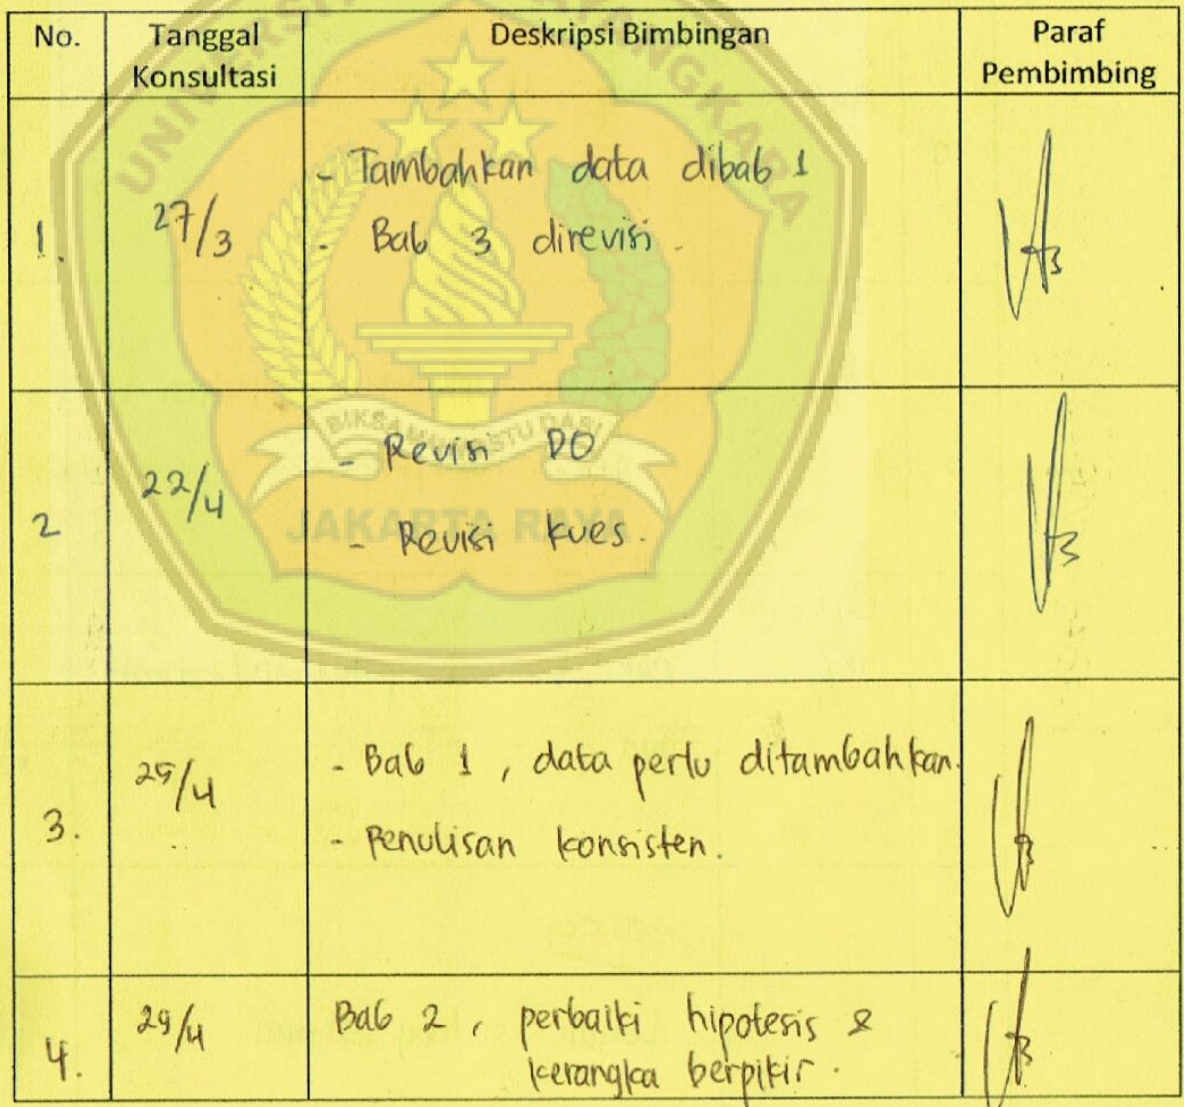 No.
Tanggal
Konsultasi
Deskripsi Bimbingan
Paraf
Pembimbing
1.
27/3
- Tambahkan data dibab 1
- Bab 3 direvisi.
2
22/4
- Revisi DO
- Revisi kues.
3.
25/4
- Bab 1, data perlu ditambahkan.
- Penulisan konsisten.
4.
29/4
Bab 2, perbaiki hipotesis &
kerangka berpikir.
JAKARTA RAYA